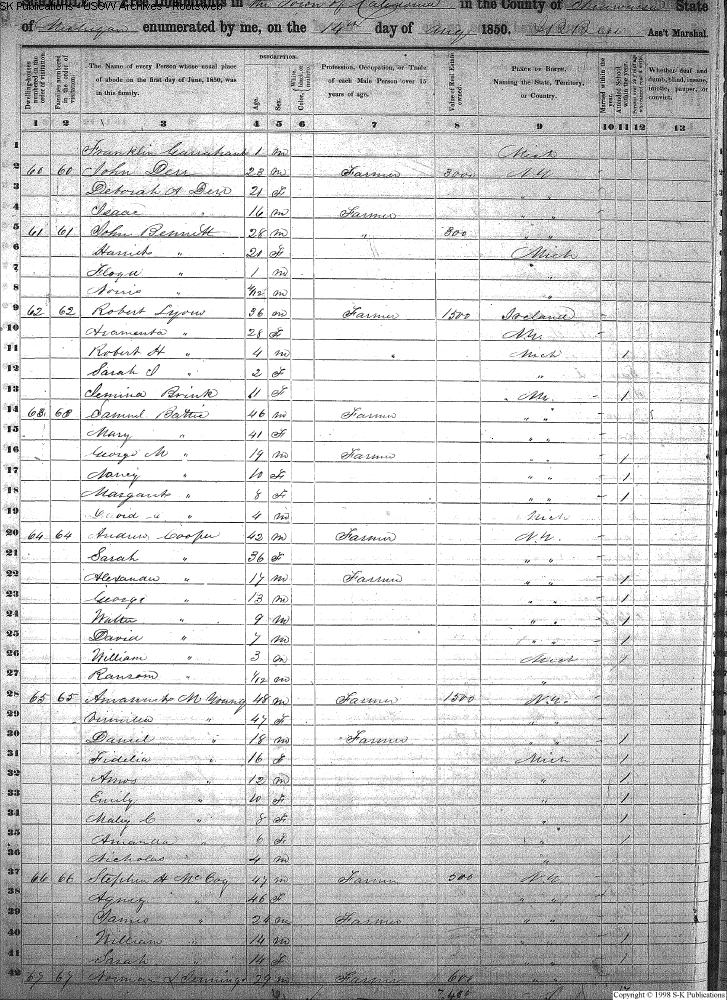 SK Publications - USGW Archives - Rootsweb
Free Inhabitants in the Town of Caledonia in the County of Shiawassee State
of Michigan enumerated by me, on the 14th day of Aug 1850. Ass't Marshal.
DESCRIPTION.
Dwelling-houses numbered in the order of visitation.
Families numbered in the order of visitation.
The Name of every Person whose usual place of abode on the first day of June, 1850, was in this family.
Age.
Sex.
Profession, Occupation, or Trade of each Male Person over 15 years of age.
Value of Real Estate owned.
PLACE OF BIRTH. Naming the State, Territory, or Country.
Married within the year.
Whether deaf and dumb, blind, insane, idiotic, pauper, or convict.
1 2 3 4 5 6 7 8 9 10 11 12 13
1 Franklin 1 m Mich
2 60 60 John Derr 23 m Farmer 3000 N.Y.
3 Deborah A Derr 21 F " "
4 Isaac " 16 m Farmer " "
5 61 61 John Bennett 28 m " 800 " "
6 Harriet " 21 F Mich
7 Floyd " 1 m "
8 Norris " /12 m "
9 62 62 Robert Lyons 36 m Farmer 1500 Ireland
10 Aramenta " 28 F N.Y.
11 Robert H " 4 m " Mich 1
12 Sarah J " 2 F "
13 Jemina Brink 11 F N.Y. 1
14 63 63 Samuel 46 m Farmer " "
15 Mary " 41 F " "
16 George M " 19 m Farmer " " 1
17 Nancy " 10 F " " 1
18 Margaret " 8 F " " 1
19 David " 4 m Mich
20 64 64 Andrew Cooper 42 m Farmer N.Y.
21 Sarah " 36 F " "
22 Alexander " 17 m Farmer " " 1
23 George " 13 m " " 1
24 Walter " 9 m " " 1
25 David " 7 m " " 1
26 William " 3 m Mich 1
27 Ransom " /12 m "
28 65 65 M Young 48 m Farmer 1500 N.Y.
29 " 47 F " "
30 Daniel " 18 m Farmer " " 1
31 Fidelia " 16 F Mich 1
32 Amos " 12 m " 1
33 Emily " 10 F " 1
34 Mary C " 8 F " 1
35 Amanda " 6 F " 1
36 Nicholas " 4 m "
37 66 66 Stephen H McCoy 47 m Farmer 500 N.Y.
38 Agnes " 46 F " "
39 James " 24 m Farmer " "
40 William " 14 m " " 1
41 Sarah " 14 F " " 1
42 67 67 Norman L Jennings 29 m Farmer 600 " "
Copyright © 1998 S-K Publications